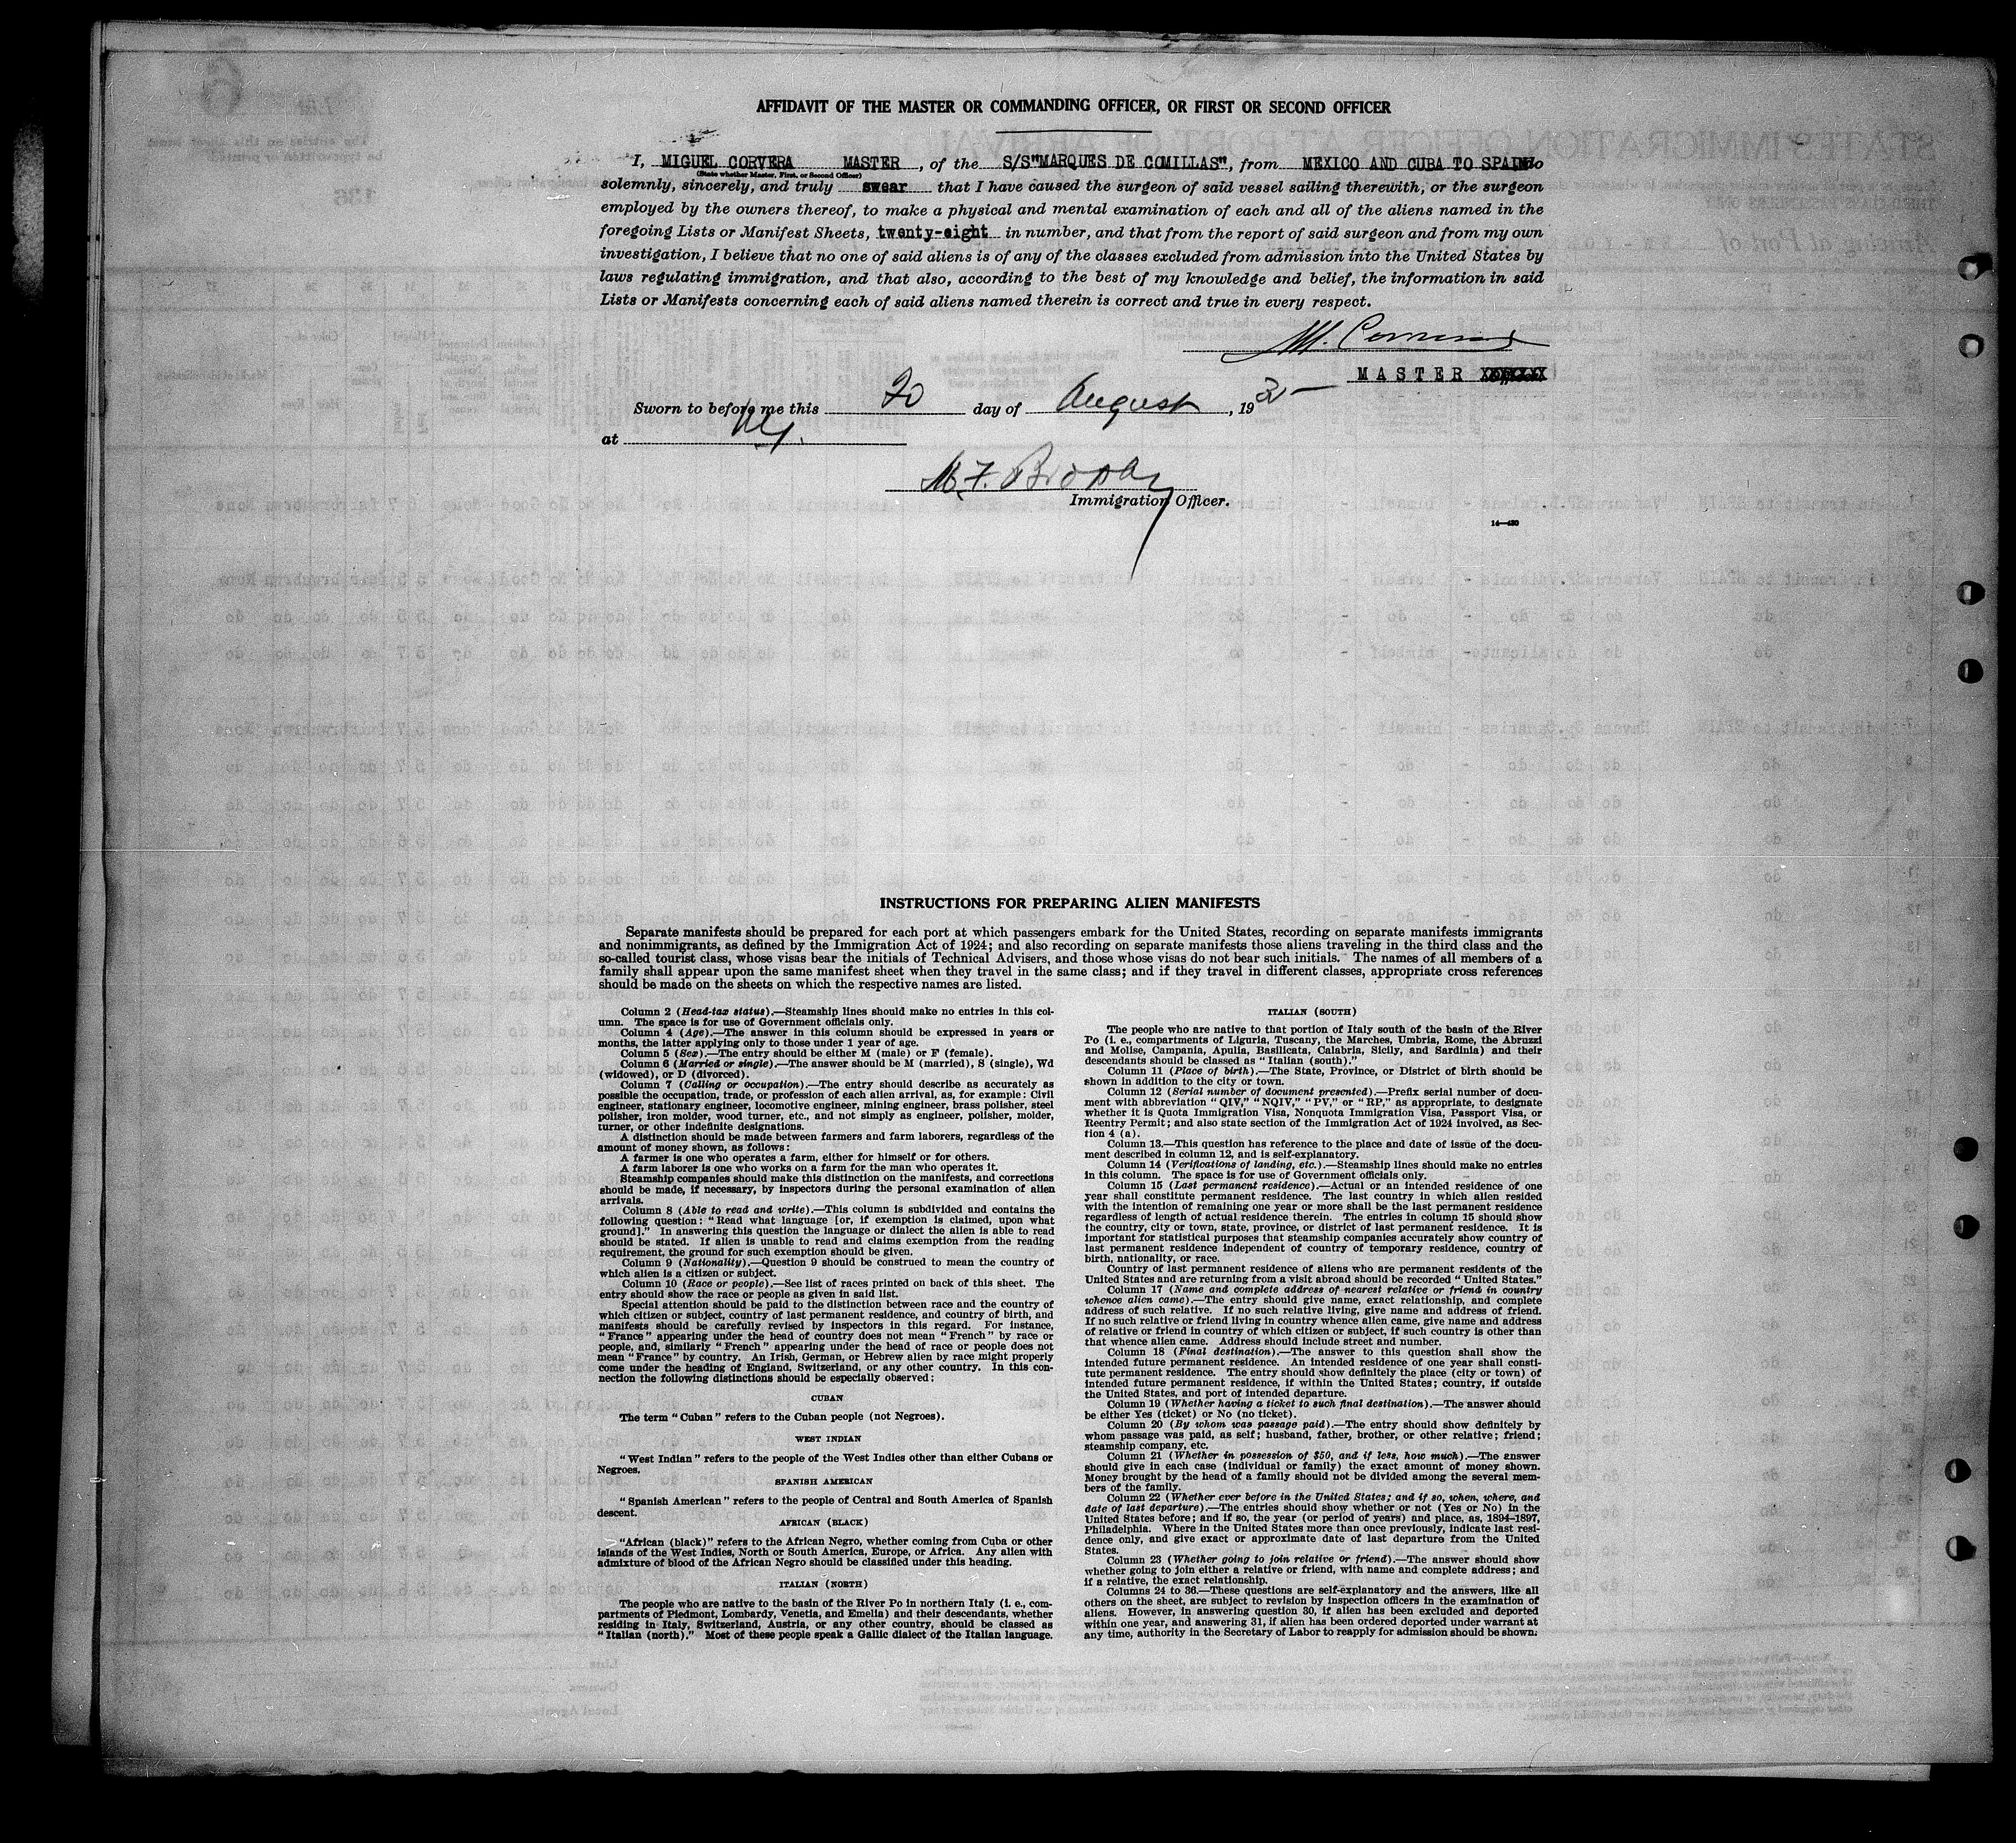 AFFIDAVIT OF THE MASTER OR COMMANDING OFFICER, OR FIRST OR SECOND OFFICER
I, MIGUEL CORVERA MASTER, of the S/S"MARQUES DE COMILLAS", from MEXICO AND CUBA TO SPAIN do
(State whether Master, First, or Second Officer)
solemnly, sincerely, and truly swear that I have caused the surgeon of said vessel sailing therewith, or the surgeon
employed by the owners thereof, to make a physical and mental examination of each and all of the aliens named in the
foregoing Lists or Manifest Sheets, twenty-eight in number, and that from the report of said surgeon and from my own
investigation, I believe that no one of said aliens is of any of the classes excluded from admission into the United States by
laws regulating immigration, and that also, according to the best of my knowledge and belief, the information in said
Lists or Manifests concerning each of said aliens named therein is correct and true in every respect.
MASTER
Sworn to before me this 20 day of August, 193
at NY.
Immigration Officer.
14—430
INSTRUCTIONS FOR PREPARING ALIEN MANIFESTS
Separate manifests should be prepared for each port at which passengers embark for the United States, recording on separate manifests immigrants
and nonimmigrants, as defined by the Immigration Act of 1924; and also recording on separate manifests those aliens traveling in the third class and the
so-called tourist class, whose visas bear the initials of Technical Advisers, and those whose visas do not bear such initials. The names of all members of a
family shall appear upon the same manifest sheet when they travel in the same class; and if they travel in different classes, appropriate cross references
should be made on the sheets on which the respective names are listed.
Column 2 (Head-tax status).—Steamship lines should make no entries in this col-
umn. The space is for use of Government officials only.
Column 4 (Age).—The answer in this column should be expressed in years or
months, the latter applying only to those under 1 year of age.
Column 5 (Sex).—The entry should be either M (male) or F (female).
Column 6 (Married or single).—The answer should be M (married), S (single), Wd
(widowed), or D (divorced).
Column 7 (Calling or occupation).—The entry should describe as accurately as
possible the occupation, trade, or profession of each alien arrival, as, for example: Civil
engineer, stationary engineer, locomotive engineer, mining engineer, brass polisher, steel
polisher, iron molder, wood turner, etc., and not simply as engineer, polisher, molder,
turner, or other indefinite designations.
A distinction should be made between farmers and farm laborers, regardless of the
amount of money shown, as follows:
A farmer is one who operates a farm, either for himself or for others.
A farm laborer is one who works on a farm for the man who operates it.
Steamship companies should make this distinction on the manifests, and corrections
should be made, if necessary, by inspectors during the personal examination of alien
arrivals.
Column 8 (Able to read and write).—This column is subdivided and contains the
following question: "Read what language [or, if exemption is claimed, upon what
ground]." In answering this question the language or dialect the alien is able to read
should be stated. If alien is unable to read and claims exemption from the reading
requirement, the ground for such exemption should be given.
Column 9 (Nationality).—Question 9 should be construed to mean the country of
which alien is a citizen or subject.
Column 10 (Race or people).—See list of races printed on back of this sheet. The
entry should show the race or people as given in said list.
Special attention should be paid to the distinction between race and the country of
which citizen or subject, country of last permanent residence, and country of birth, and
manifests should be carefully revised by inspectors in this regard. For instance,
"France" appearing under the head of country does not mean "French" by race or
people, and, similarly "French" appearing under the head of race or people does not
mean "France" by country. An Irish, German, or Hebrew alien by race might properly
come under the heading of England, Switzerland, or any other country. In this con-
nection the following distinctions should be especially observed:
CUBAN
The term "Cuban" refers to the Cuban people (not Negroes).
WEST INDIAN
"West Indian" refers to the people of the West Indies other than either Cubans or
Negroes.
SPANISH AMERICAN
"Spanish American" refers to the people of Central and South America of Spanish
descent.
AFRICAN (BLACK)
"African (black)" refers to the African Negro, whether coming from Cuba or other
islands of the West Indies, North or South America, Europe, or Africa. Any alien with
admixture of blood of the African Negro should be classified under this heading.
ITALIAN (NORTH)
The people who are native to the basin of the River Po in northern Italy (i. e., com-
partments of Piedmont, Lombardy, Venetia, and Emelia) and their descendants, whether
residing in Italy, Switzerland, Austria, or any other country, should be classed as
"Italian (north)." Most of these people speak a Gallic dialect of the Italian language.
ITALIAN (SOUTH)
The people who are native to that portion of Italy south of the basin of the River
Po (i. e., compartments of Liguria, Tuscany, the Marches, Umbria, Rome, the Abruzzi
and Molise, Campania, Apulia, Basilicata, Calabria, Sicily, and Sardinia) and their
descendants should be classed as "Italian (south)."
Column 11 (Place of birth).—The State, Province, or District of birth should be
shown in addition to the city or town.
Column 12 (Serial number of document presented).—Prefix serial number of docu-
ment with abbreviation "QIV," "NQIV," "PV," or "RP," as appropriate, to designate
whether it is Quota Immigration Visa, Nonquota Immigration Visa, Passport Visa, or
Reentry Permit; and also state section of the Immigration Act of 1924 involved, as Sec-
tion 4 (a).
Column 13.—This question has reference to the place and date of issue of the docu-
ment described in column 12, and is self-explanatory.
Column 14 (Verifications of landing, etc.).—Steamship lines should make no entries
in this column. The space is for use of Government officials only.
Column 15 (Last permanent residence).—Actual or an intended residence of one
year shall constitute permanent residence. The last country in which alien resided
with the intention of remaining one year or more shall be the last permanent residence
regardless of length of actual residence therein. The entries in column 15 should show
the country, city or town, state, province, or district of last permanent residence. It is
important for statistical purposes that steamship companies accurately show country of
last permanent residence independent of country of temporary residence, country of
birth, nationality, or race.
Country of last permanent residence of aliens who are permanent residents of the
United States and are returning from a visit abroad should be recorded "United States."
Column 17 (Name and complete address of nearest relative or friend in country
whence alien came).—The entry should give name, exact relationship, and complete
address of such relative. If no such relative living, give name and address of friend.
If no such relative or friend living in country whence alien came, give name and address
of relative or friend in country of which citizen or subject, if such country is other than
that whence alien came. Address should include street and number.
Column 18 (Final destination).—The answer to this question shall show the
intended future permanent residence. An intended residence of one year shall consti-
tute permanent residence. The entry should show definitely the place (city or town) of
intended future permanent residence, if within the United States; country, if outside
the United States, and port of intended departure.
Column 19 (Whether having a ticket to such final destination).—The answer should
be either Yes (ticket) or No (no ticket).
Column 20 (By whom was passage paid).—The entry should show definitely by
whom passage was paid, as self; husband, father, brother, or other relative; friend;
steamship company, etc.
Column 21 (Whether in possession of $50, and if less, how much).—The answer
should give in each case (individual or family) the exact amount of money shown.
Money brought by the head of a family should not be divided among the several mem-
bers of the family.
Column 22 (Whether ever before in the United States; and if so, when, where, and
date of last departure).—The entries should show whether or not (Yes or No) in the
United States before; and if so, the year (or period of years) and place, as, 1894–1897,
Philadelphia. Where in the United States more than once previously, indicate last resi-
dence only, and give exact or approximate date of last departure from the United
States.
Column 23 (Whether going to join relative or friend).—The answer should show
whether going to join either a relative or friend, with name and complete address; and
if a relative, the exact relationship.
Columns 24 to 36.—These questions are self-explanatory and the answers, like all
others on the sheet, are subject to revision by inspection officers in the examination of
aliens. However, in answering question 30, if alien has been excluded and deported
within one year, and answering 31, if alien has been ordered deported under warrant at
any time, authority in the Secretary of Labor to reapply for admission should be shown.